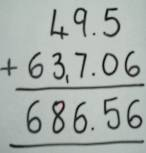 49.5
+ 637.06
686.56